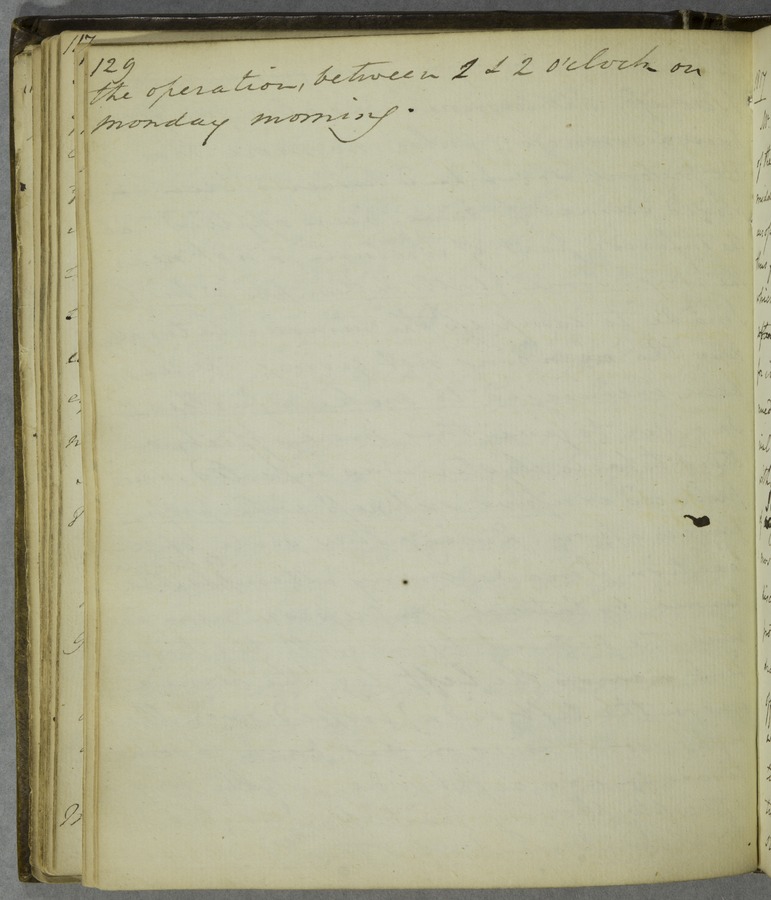 129
the operation, between 1 & 2 o'clock on
monday morning.